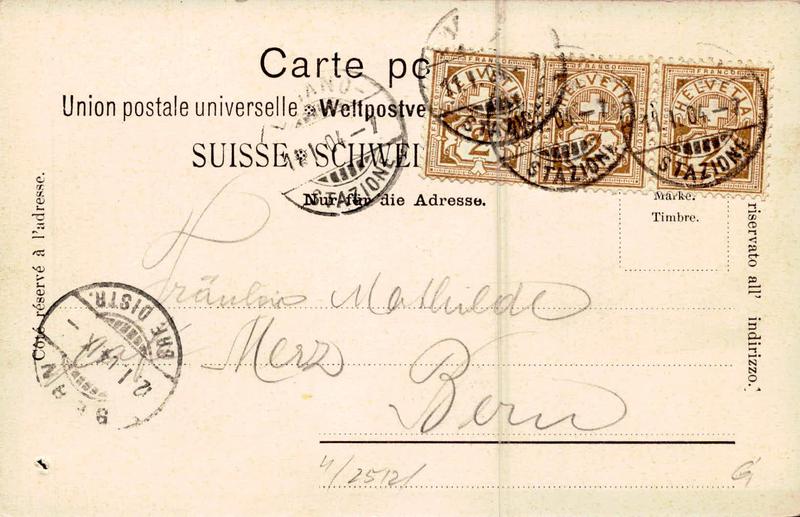 Carte po
Union postale universelle ❉ Weltpostve
SUISSE ❉ SCHWEI
Nur für die Adresse.
Marke.
Timbre.
Côté réservé à l'adresse.
riservato all' indirizzo.
FRANCO
HELVETIA
2
FRANCO
HELVETIA
FRANCO
HELVETIA
LUGANO-
11.I.04.-7
STAZIONE
04.-7
STAZIONE
11.I.04.-7
STAZIONE
BERN
BRF. DISTR.
12.I.
Fräulein Mathilde
Merz
Bern